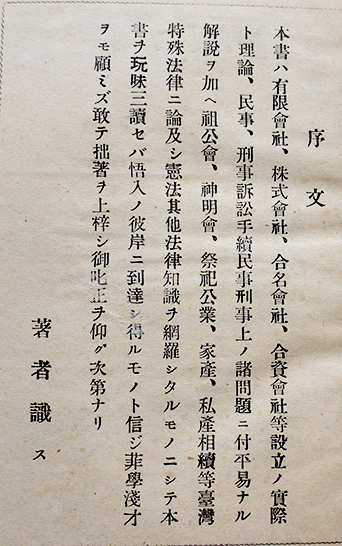 序文
本書ハ有限會社、株式會社、合名會社、合資會社等設立ノ實際
ト理論、民事、刑事訴訟手續民事刑事上ノ諸問題ニ付平易ナル
解説ヲ加ヘ祖公會、神明會、祭祀公業、家産、私産相續等臺灣
特殊法律ニ論及シ憲法其他法律知識ヲ網羅シタルモノニシテ本
書ヲ玩味三讀セバ悟入ノ彼岸ニ到達シ得ルモノト信ジ菲學淺才
ヲモ顧ミズ敢テ拙著ヲ上梓シ御叱正ヲ仰グ次第ナリ
著者識ス